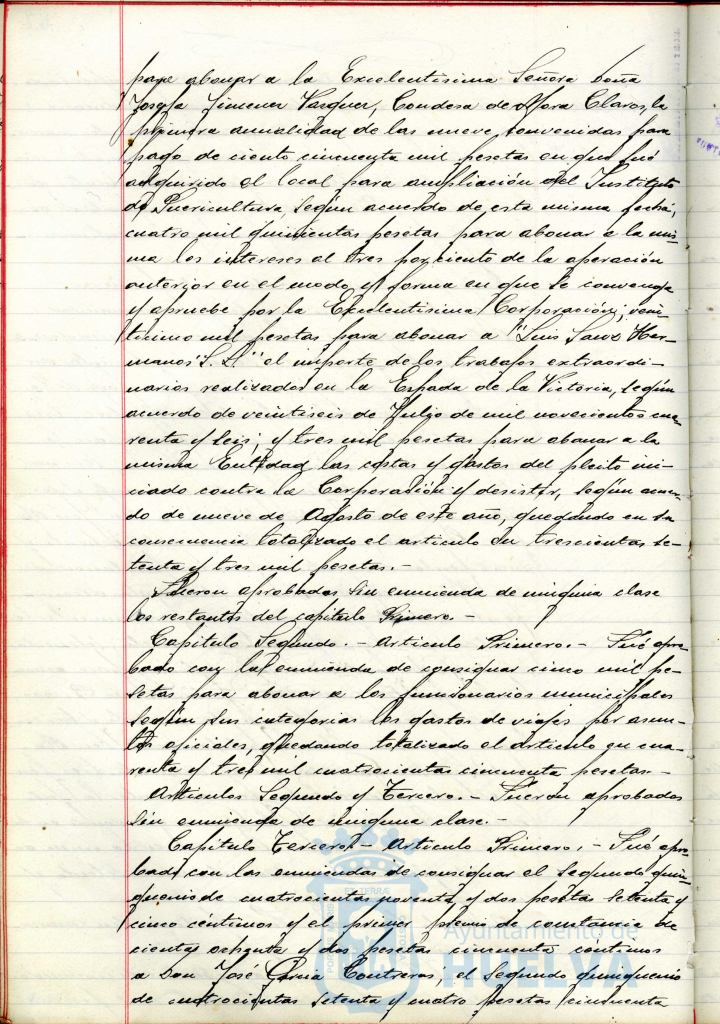 para abonar a la Excelentísima Señora Doña
Josefa Jimenez Vazquez, Condesa de Mora Claros, la
primera anualidad de las nueve convenidas para
pago de ciento cincuenta mil pesetas en que fué
adquirido el local para ampliación del Instituto
de Puericultura, según acuerdo de esta misma fecha;
cuatro mil quinientas pesetas para abonar a la mis-
ma los intereses al tres por ciento de la operación
anterior en el modo y forma en que se convenga
y apruebe por la Excelentísima Corporación; vein-
ticinco mil pesetas para abonar a "Luis Sanz Her-
manos S. L." el importe de los trabajos extraordi-
narios realizados en la Espada de la Victoria, según
acuerdo de veintiseis de Julio de mil novecientos cua-
renta y seis; y tres mil pesetas para abonar a la
misma Entidad las costas y gastos del pleito ini-
ciado contra la Corporación y desistir, según acuer-
do de nueve de Agosto de este año, quedando en su
consecuencia totalizado el artículo en trescientas se-
tenta y tres mil pesetas.-
Fueron aprobados sin enmienda de ninguna clase
los restantes del capítulo Primero.-
Capítulo Segundo.- Artículo Primero.- Fué apro-
bado con la enmienda de consignar cinco mil pe-
setas para abonar a los funcionarios municipales
según sus categorías los gastos de viajes por asun-
tos oficiales, quedando totalizado el artículo en cua-
renta y tres mil cuatrocientas cincuenta pesetas.-
Artículos Segundo y Tercero.- Fueron aprobados
sin enmienda de ninguna clase.-
Capítulo Tercero.- Artículo Primero.- Fué apro-
bado con las enmiendas de consignar el segundo quin-
quenio de cuatrocientas noventa y dos pesetas setenta y
cinco céntimos y el primer premio de constancia de
cientas ochenta y dos pesetas cincuenta céntimos
a Don José Garcia Contreras; el segundo quinquenio
de cuatrocientas setenta y cuatro pesetas cincuenta
Ayuntamiento de
HUELVA